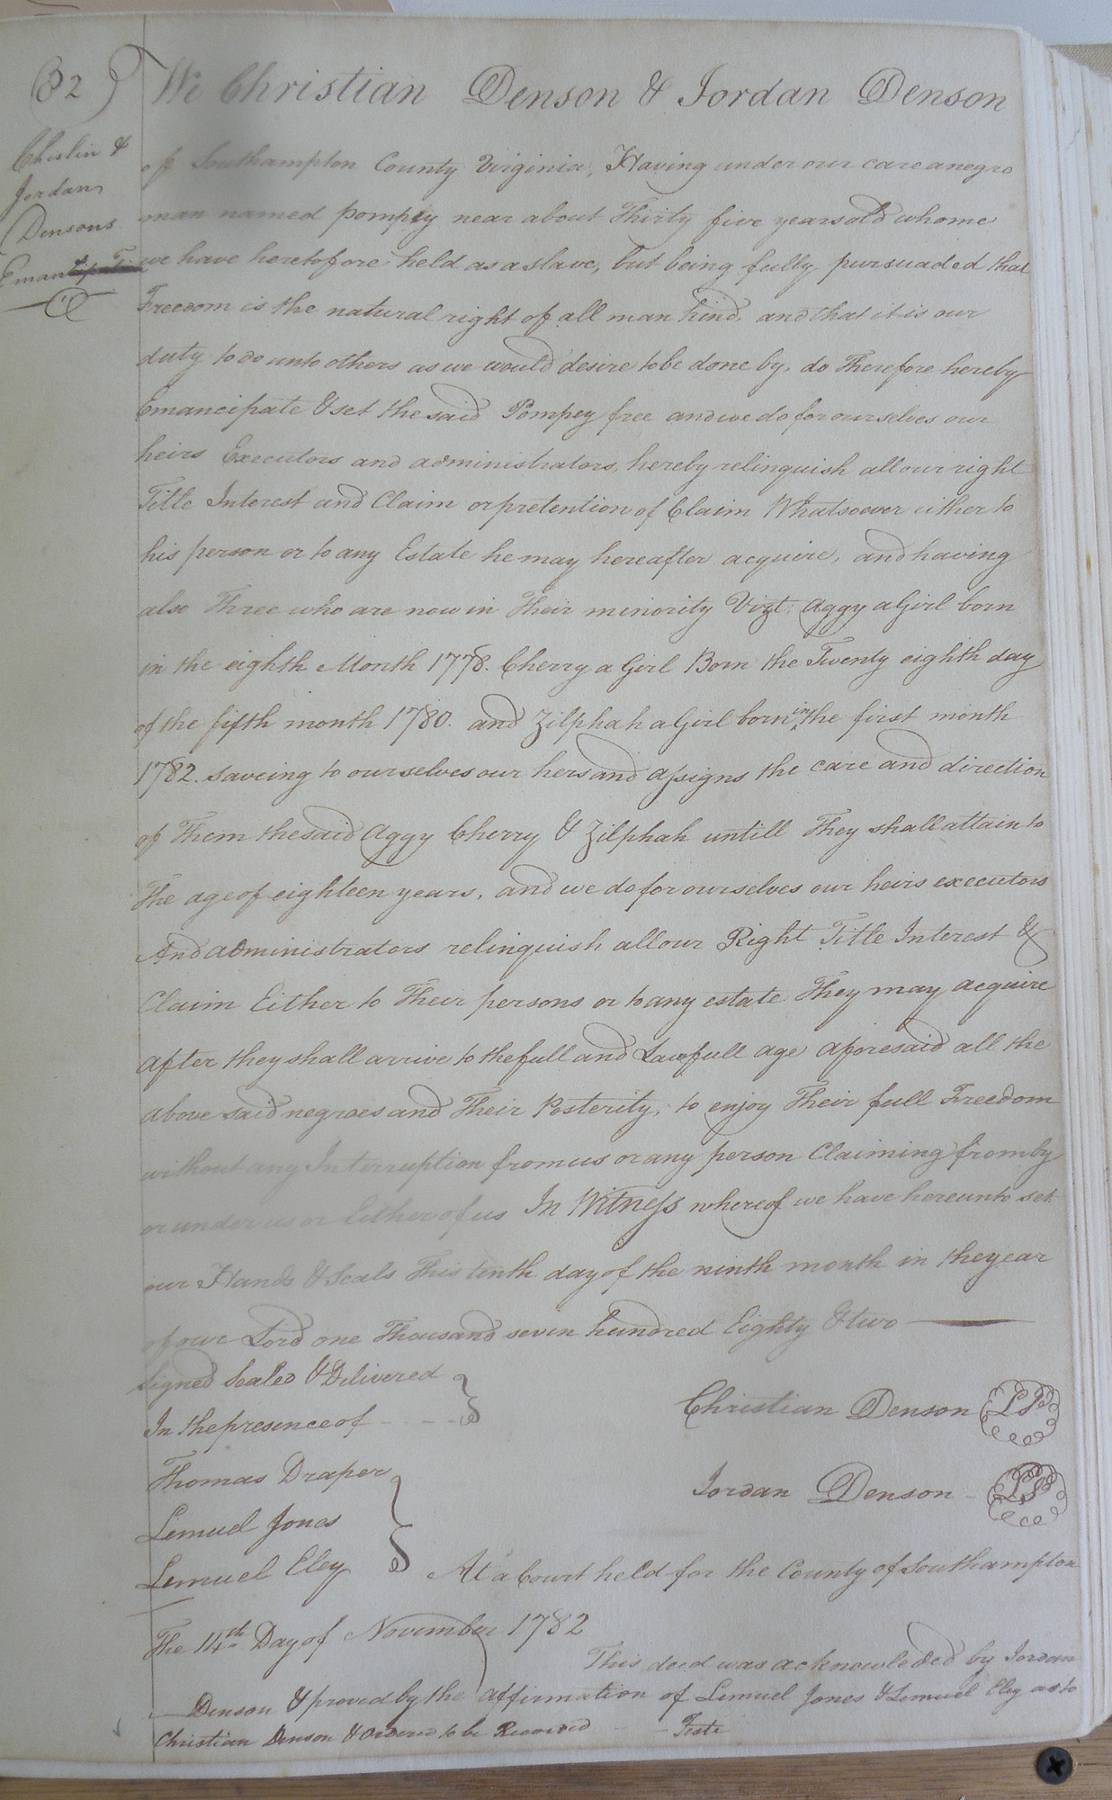 32
Christin &
Jordan
Densons
Emancipation
We Christian Denson & Jordan Denson
of Southampton County Virginia, Having under our care a negro
man named pompey near about Thirty five years old whome
we have heretofore held as a slave, but being fully pursuaded that
Freedom is the natural right of all man kind, and that it is our
duty to do unto others as we would desire to be done by, do Therefore hereby
Emancipate & set the said Pompey free and we do for ourselves our
heirs Executors and administrators, hereby relinquish all our right
Title Interest and Claim or pretention of Claim Whatsoever either to
his person or to any Estate he may hereafter acquire, and having
also Three who are now in Their minority Vizt. Aggy a Girl born
in the eighth Month 1778. Cherry a Girl Born the Twenty eighth day
of the fifth month 1780. and Zilphah a Girl born in the first month
1782. saveing to ourselves our hers and assigns the care and direction
of Them the said Aggy Cherry & Zilphah untill They shall attain to
The age of eighteen years, and we do for ourselves our heirs executors
And administrators relinquish all our Right Title Interest &
Claim Either to Their persons or to any estate They may acquire
after they shall arrive to the full and Lawfull age aforesaid all the
above said negroes and Their Posterity, to enjoy Their full Freedom
without any Interruption from us or any person Claiming from by
or under us or Either of us In Witness whereof we have hereunto set
our Hands & Seals This tenth day of the ninth month in the year
of our Lord one Thousand seven hundred Eighty & two
Signed Sealed & Delivered
In the presence of
Christian Denson LS
Thomas Draper
Jordan Denson LS
Lemuel Jones
Lemuel Eley
At a Court held for the County of Southampton
The 14th Day of November 1782
This deed was acknowleded by Jordan
Denson & proved by the affirmation of Lemuel Jones & Lemuel Eley as to
Christian Denson & Ordered to be Recorded Teste